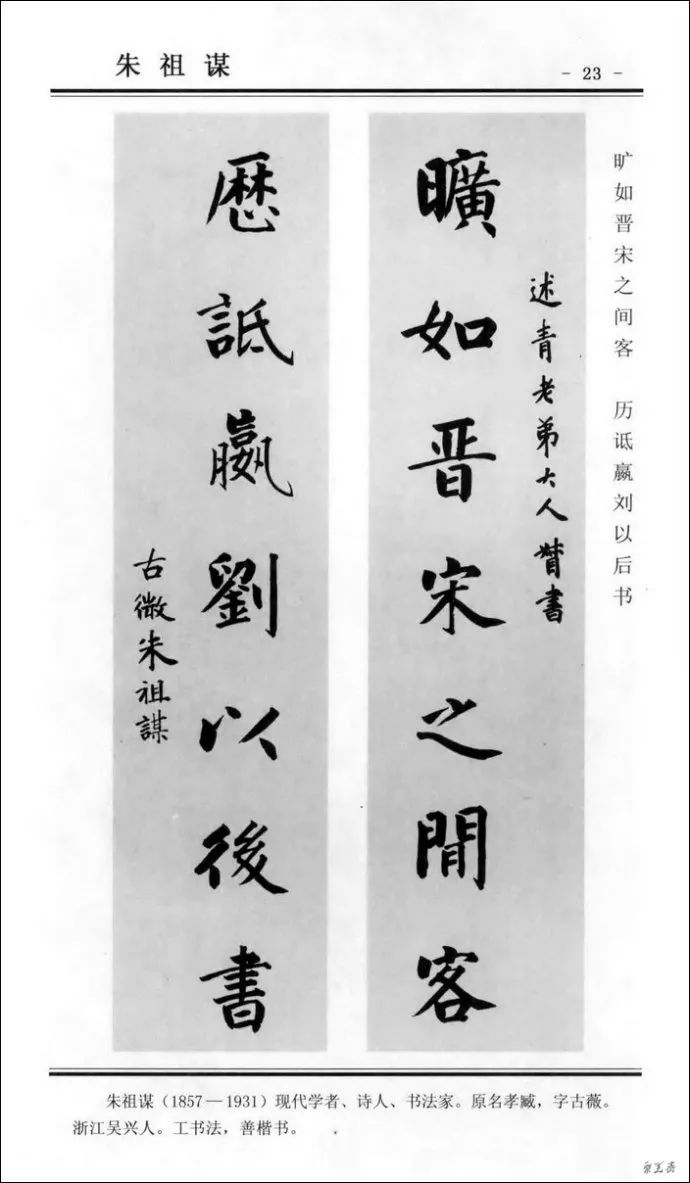 朱祖谋
- 23 -
旷如晋宋之间客 历诋嬴刘以后书
述青老弟大人督書
曠如晋宋之間客
歷詆嬴劉以後書
古微朱祖謀
朱祖谋（1857—1931）现代学者、诗人、书法家。原名孝臧，字古薇。
浙江吴兴人。工书法，善楷书。